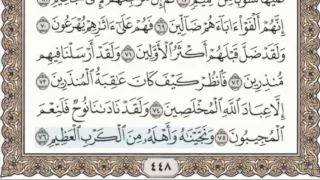 إِنَّهُمْ أَلْفَوْا۟ ءَابَآءَهُمْ ضَآلِّينَ ٦٩ فَهُمْ عَلَىٰٓ ءَاثَٰرِهِمْ يُهْرَعُونَ ٧٠
وَلَقَدْ ضَلَّ قَبْلَهُمْ أَكْثَرُ ٱلْأَوَّلِينَ ٧١ وَلَقَدْ أَرْسَلْنَا فِيهِم
مُّنذِرِينَ ٧٢ فَٱنظُرْ كَيْفَ كَانَ عَٰقِبَةُ ٱلْمُنذَرِينَ ٧٣
إِلَّا عِبَادَ ٱللَّهِ ٱلْمُخْلَصِينَ ٧٤ وَلَقَدْ نَادَىٰنَا نُوحٌ فَلَنِعْمَ
ٱلْمُجِيبُونَ ٧٥ وَنَجَّيْنَٰهُ وَأَهْلَهُۥ مِنَ ٱلْكَرْبِ ٱلْعَظِيمِ ٧٦
٤٤٨